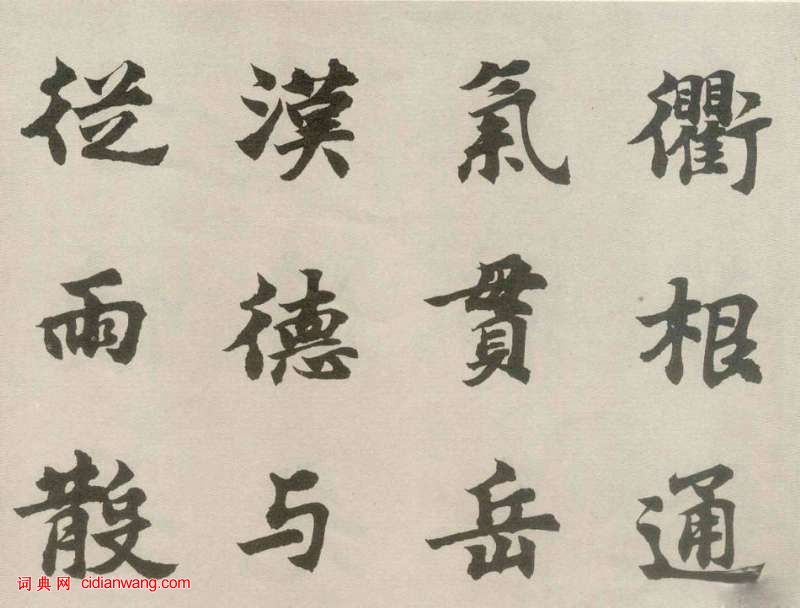 衢根通
氣貫岳
漢德与
從雨散
词典网 cidianwang.com